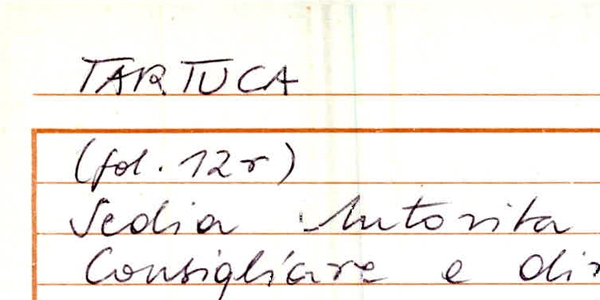 TARTUCA
(fol. 12r)
Sedia Autorita
Consigliare e dir